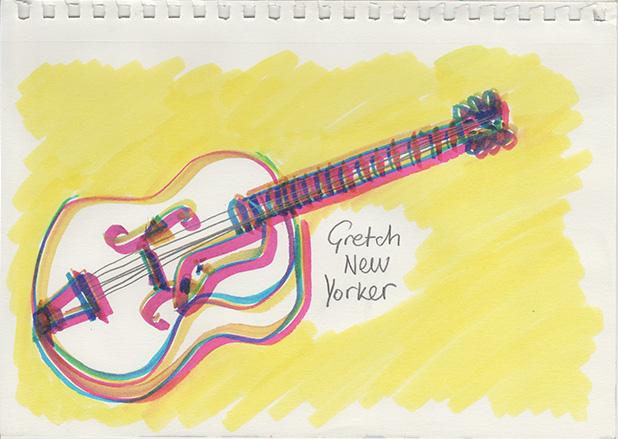 Gretch
New
Yorker